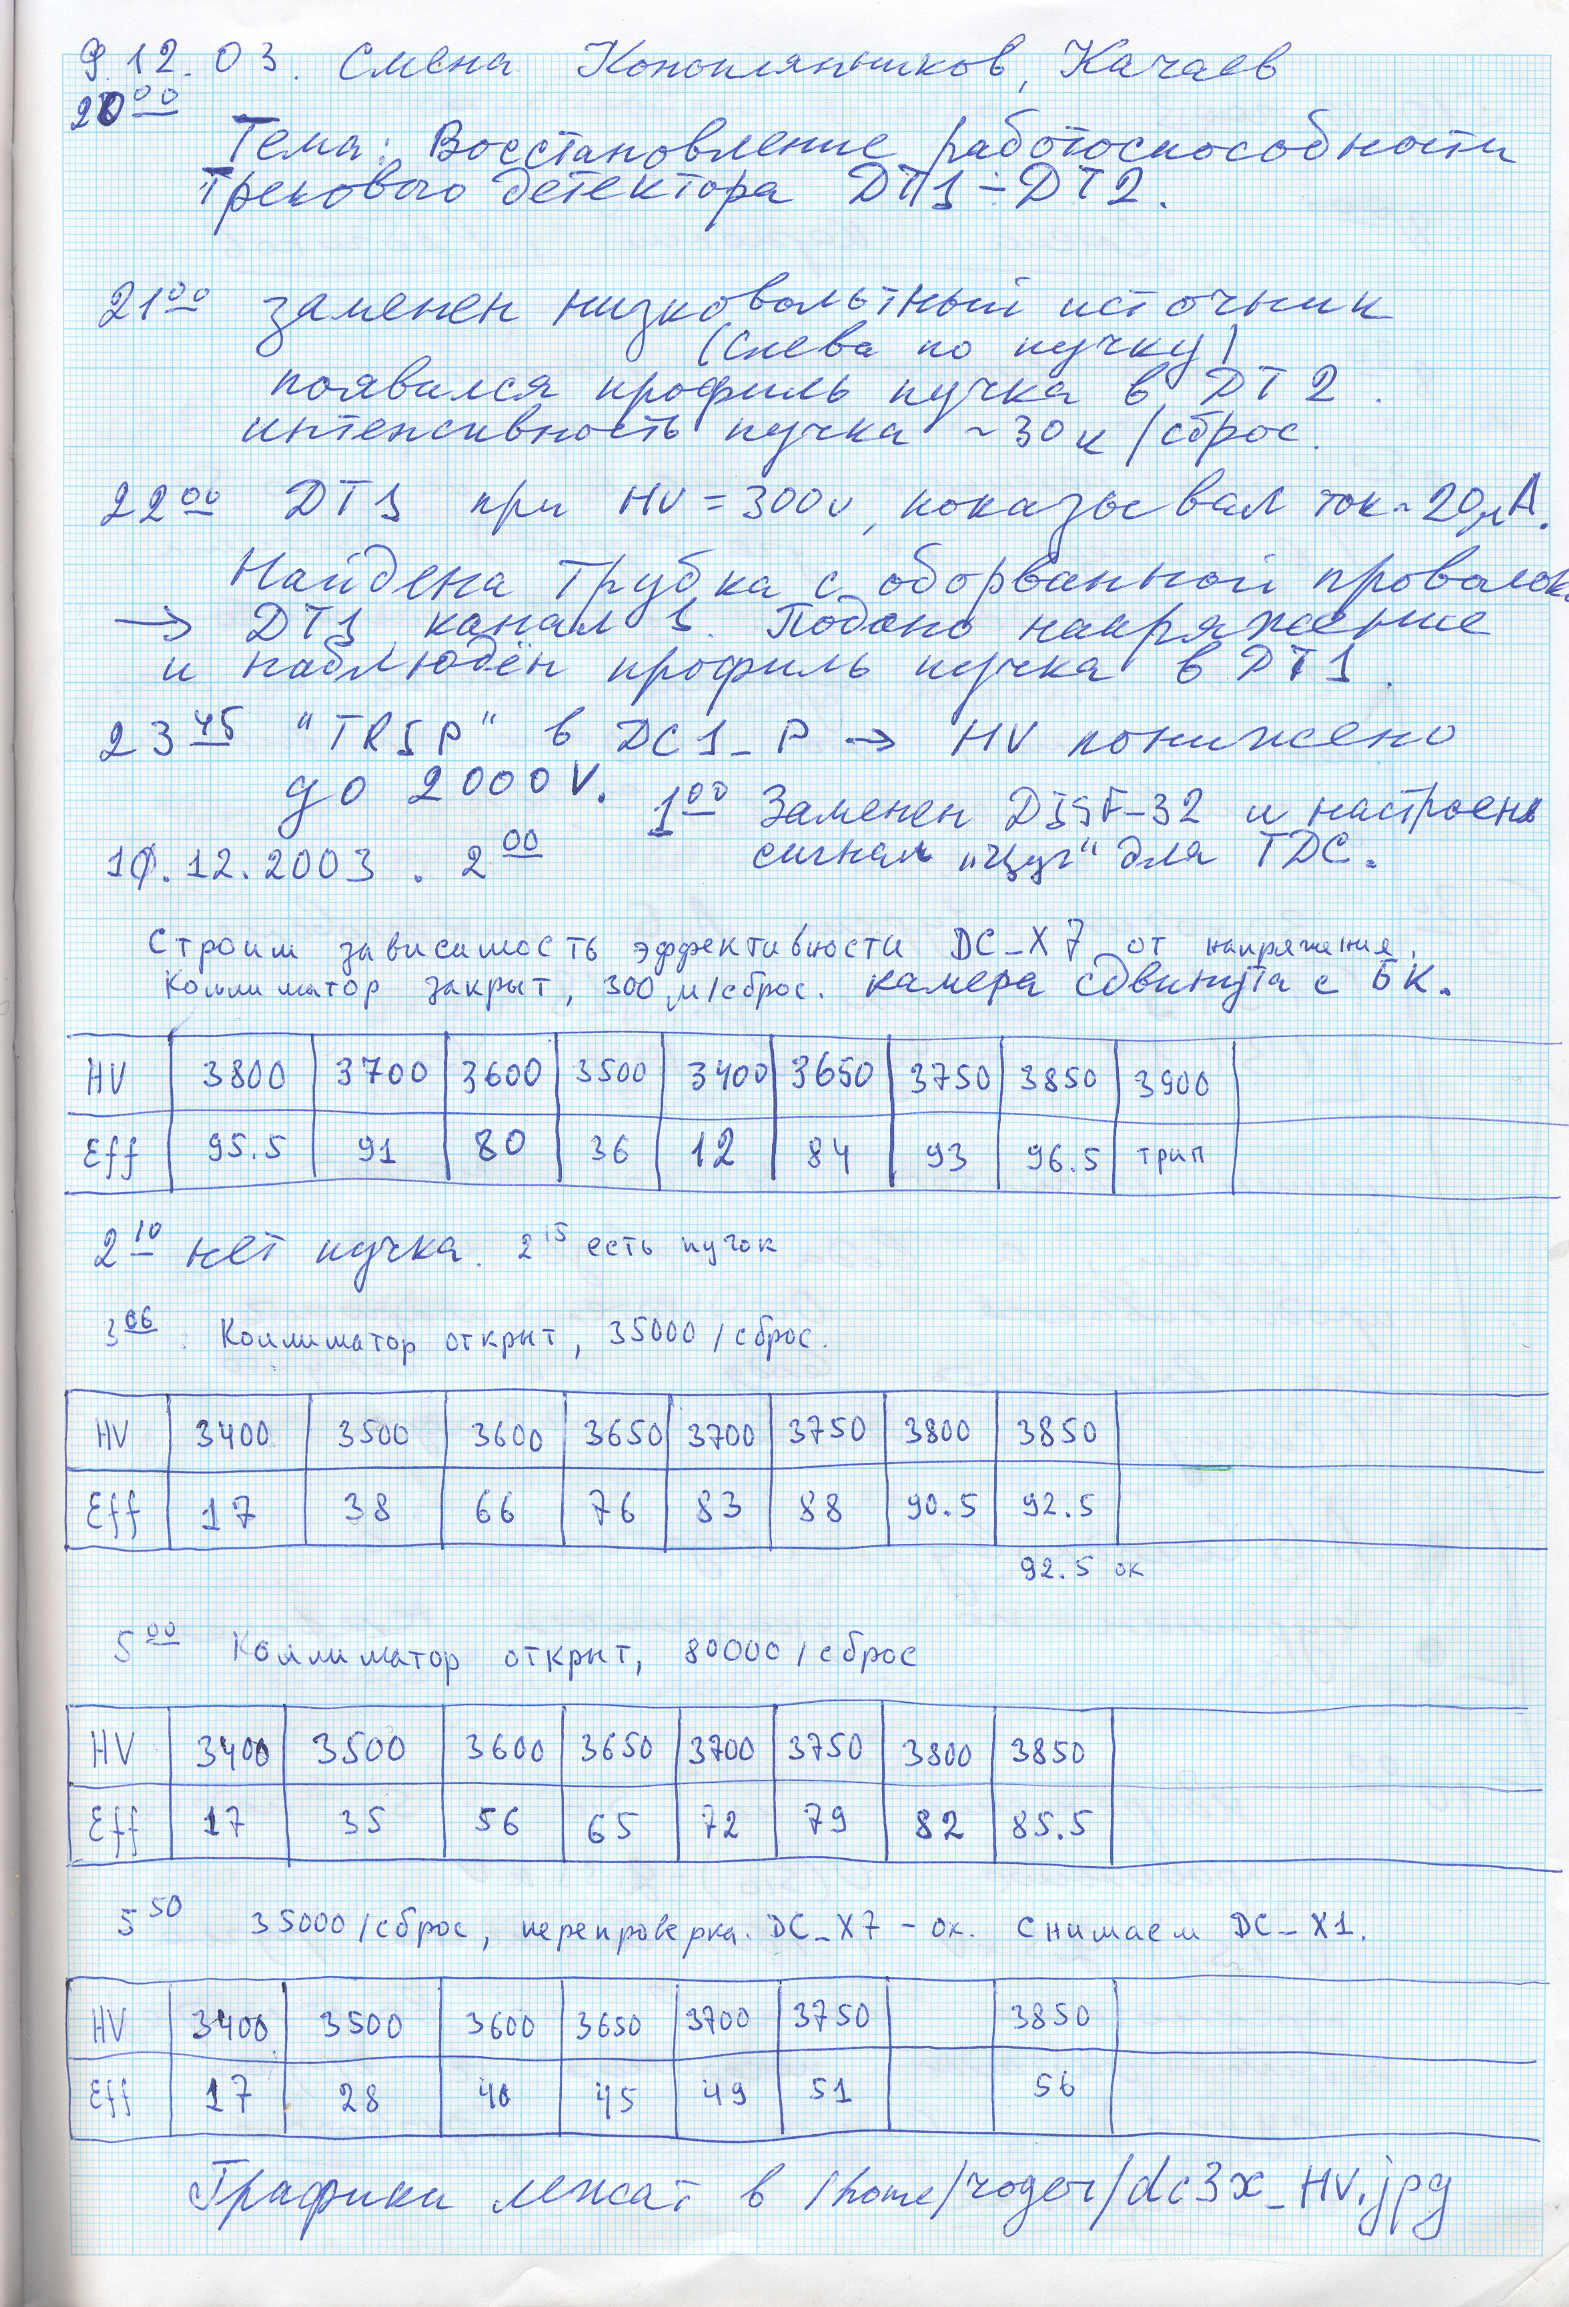 9.12.03. Смена Коноплянников, Качаев
20⁰⁰
Тема: Восстановление работоспособности
трекового детектора DT1 ÷ DT2.
21⁰⁰ заменен низковольтный источник
(слева по пучку)
появился профиль пучка в DT2.
интенсивность пучка ~30к/сброс.
22⁰⁰ DT1 при HV = 300v, показывал ток ~20μA.
Найдена трубка с оборванной проволок.
→ DT1 канал 1. Подано напряжение
и наблюдён профиль пучка в DT1.
23⁴⁵ "TRIP" в DC1_P → HV понижено
до 2000V.
1⁰⁰ Заменен DISF-32 и настроен
сигнал „цуг“ для TDC.
10.12.2003. 2⁰⁰
Строим зависимость эффективности DC_X7 от напряжения.
Коллиматор закрыт, 300 м/сброс. камера сдвинута с БК.
HV 3800 3700 3600 3500 3400 3650 3750 3850 3900
Eff 95.5 91 80 36 12 84 93 96.5 трип
2¹⁰ нет пучка. 2¹⁵ есть пучок
3⁰⁶ Коллиматор открыт, 35000/сброс.
HV 3400 3500 3600 3650 3700 3750 3800 3850
Eff 17 38 66 76 83 88 90.5 92.5
92.5 ок
5⁰⁰ Коллиматор открыт, 80000/сброс
HV 3400 3500 3600 3650 3700 3750 3800 3850
Eff 17 35 56 65 72 79 82 85.5
5⁵⁰ 35000/сброс, перепроверка. DC_X7 - ок. Снимаем DC_X1.
HV 3400 3500 3600 3650 3700 3750 3850
Eff 17 28 40 45 49 51 56
Графики лежат в /home/roger/dc3x_HV.jpg